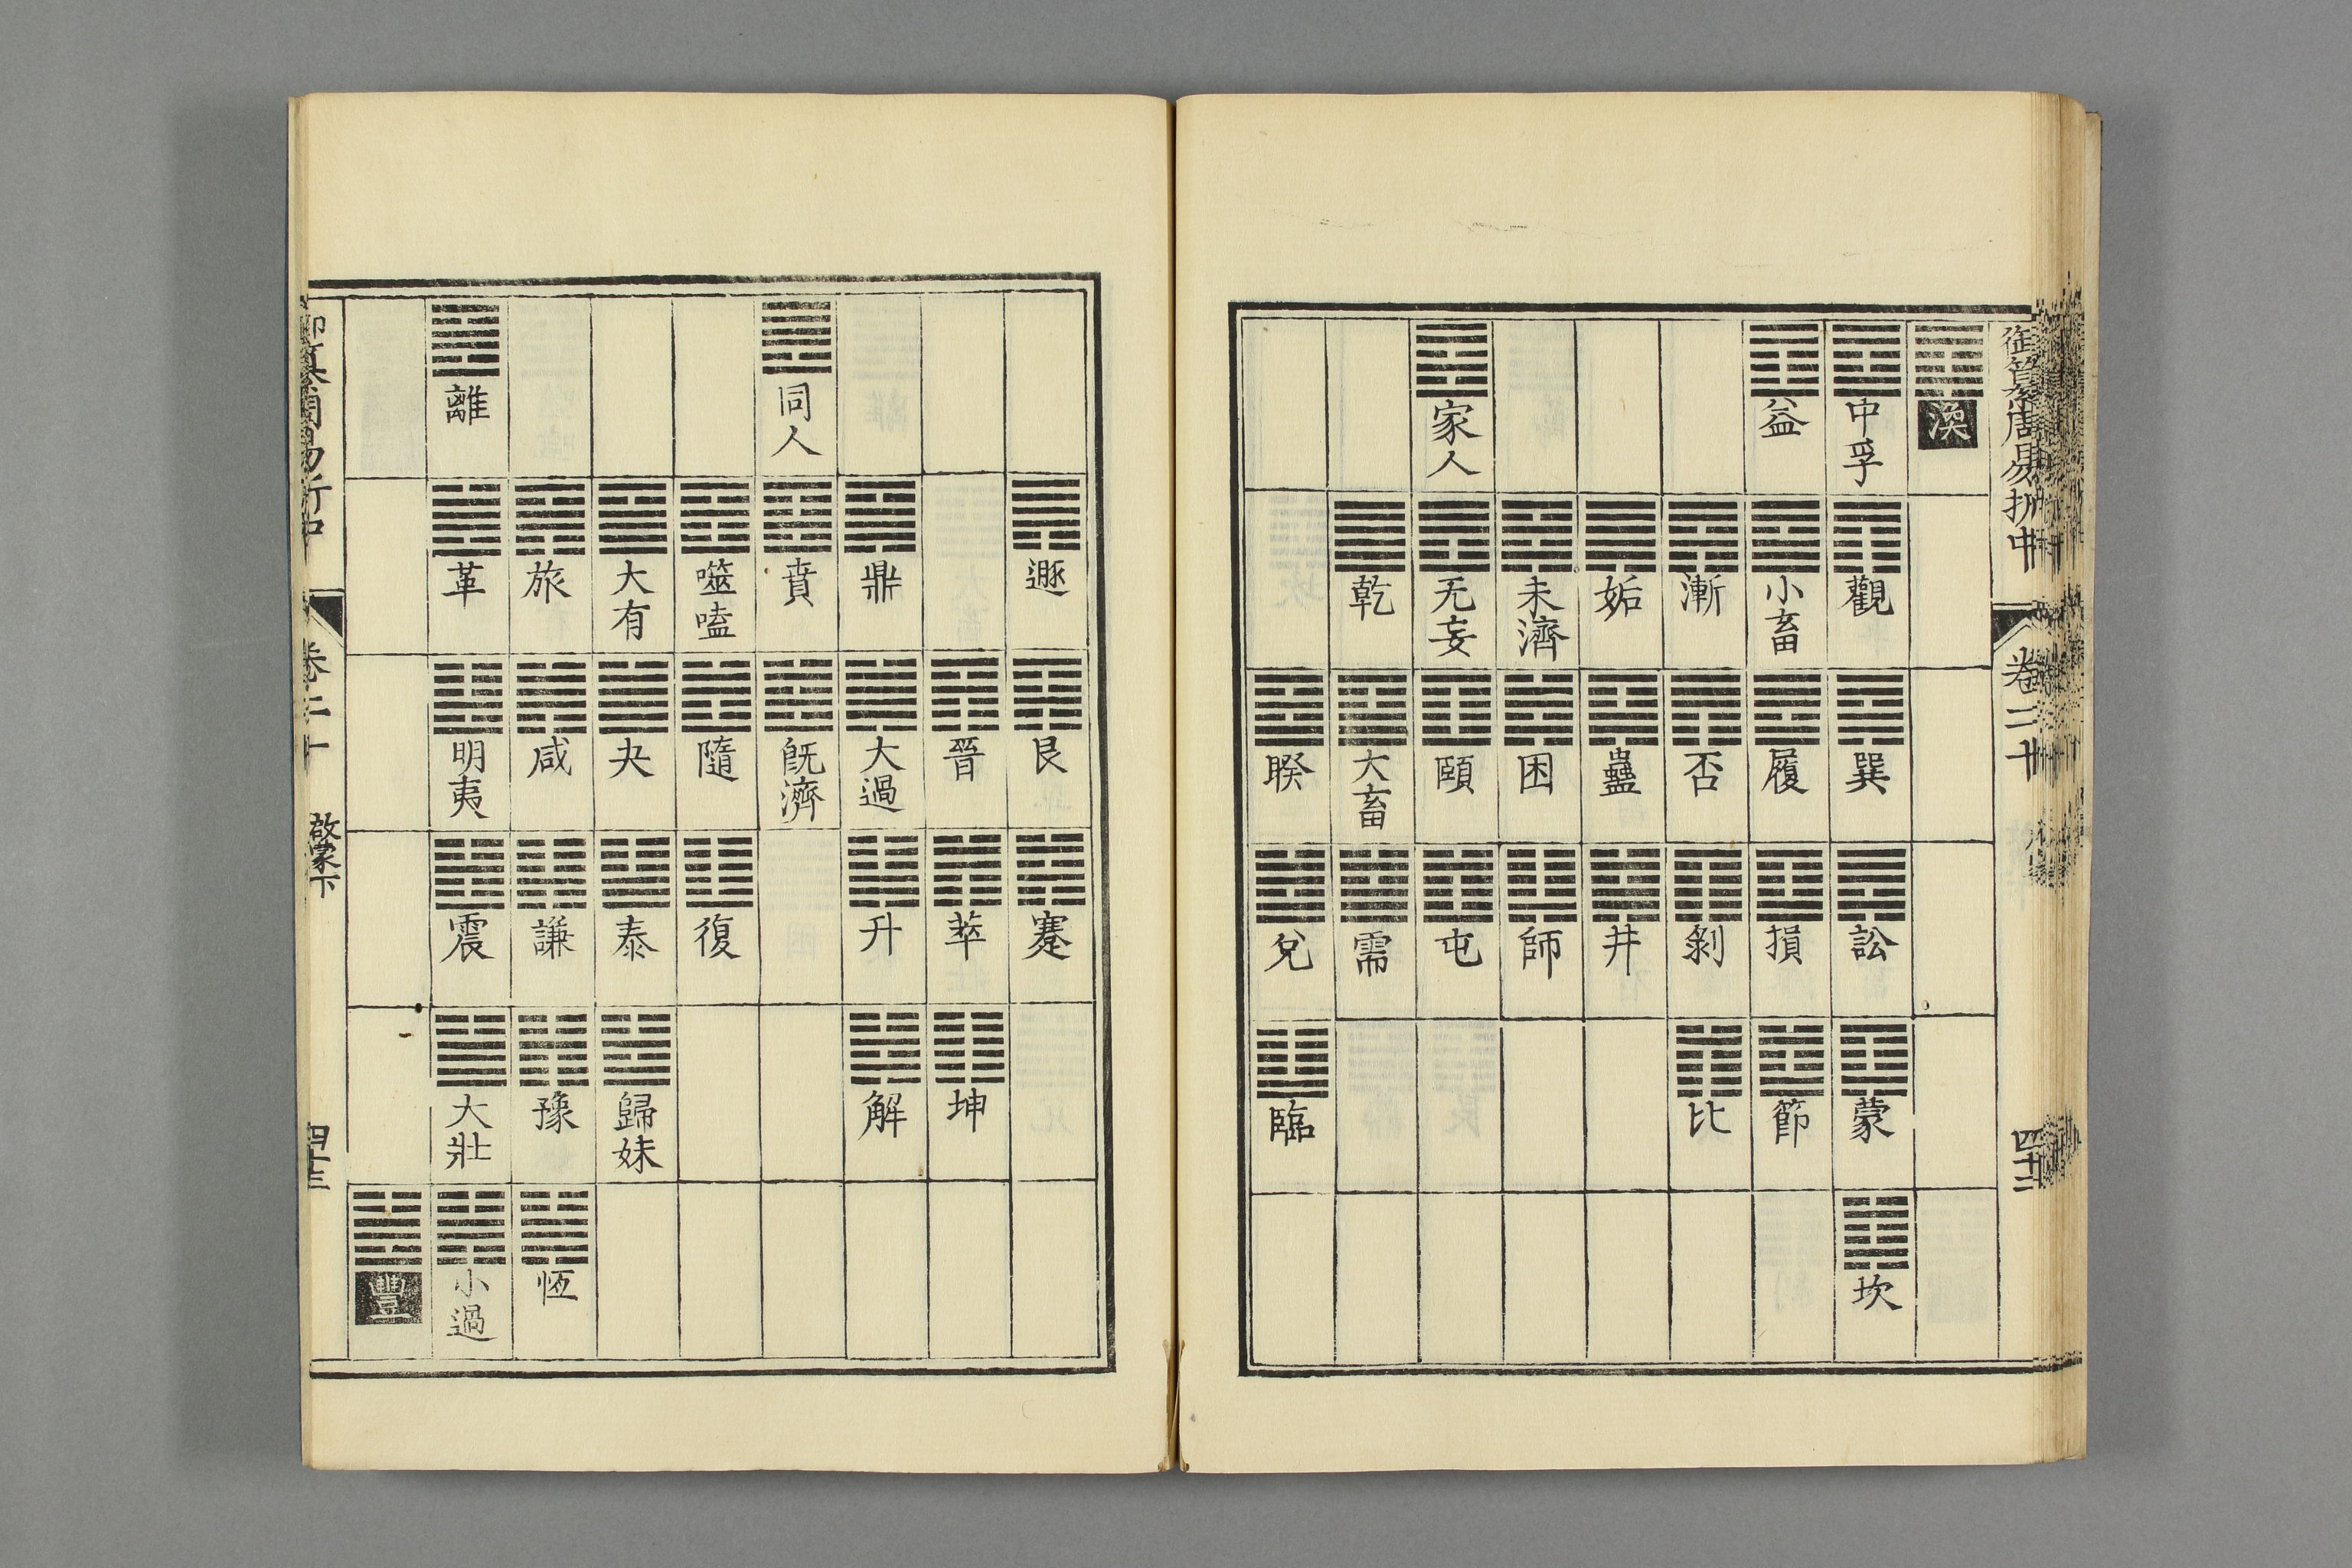 御纂周易折中 卷二十 四十二
渙
中孚 觀 巽 訟 蒙 坎
益 小畜 履 損 節
漸 否 剝 比
姤 蠱 井
未濟 困 師
家人 无妄 頤 屯
乾 大畜 需
睽 兌 臨
遯 艮 蹇
晉 萃 坤
鼎 大過 升 解
同人 賁 旣濟
噬嗑 隨 復
大有 夬 泰 歸妹
旅 咸 謙 豫 恆
離 革 明夷 震 大壯 小過
豐
御纂周易折中 卷二十 啟蒙下 四十三